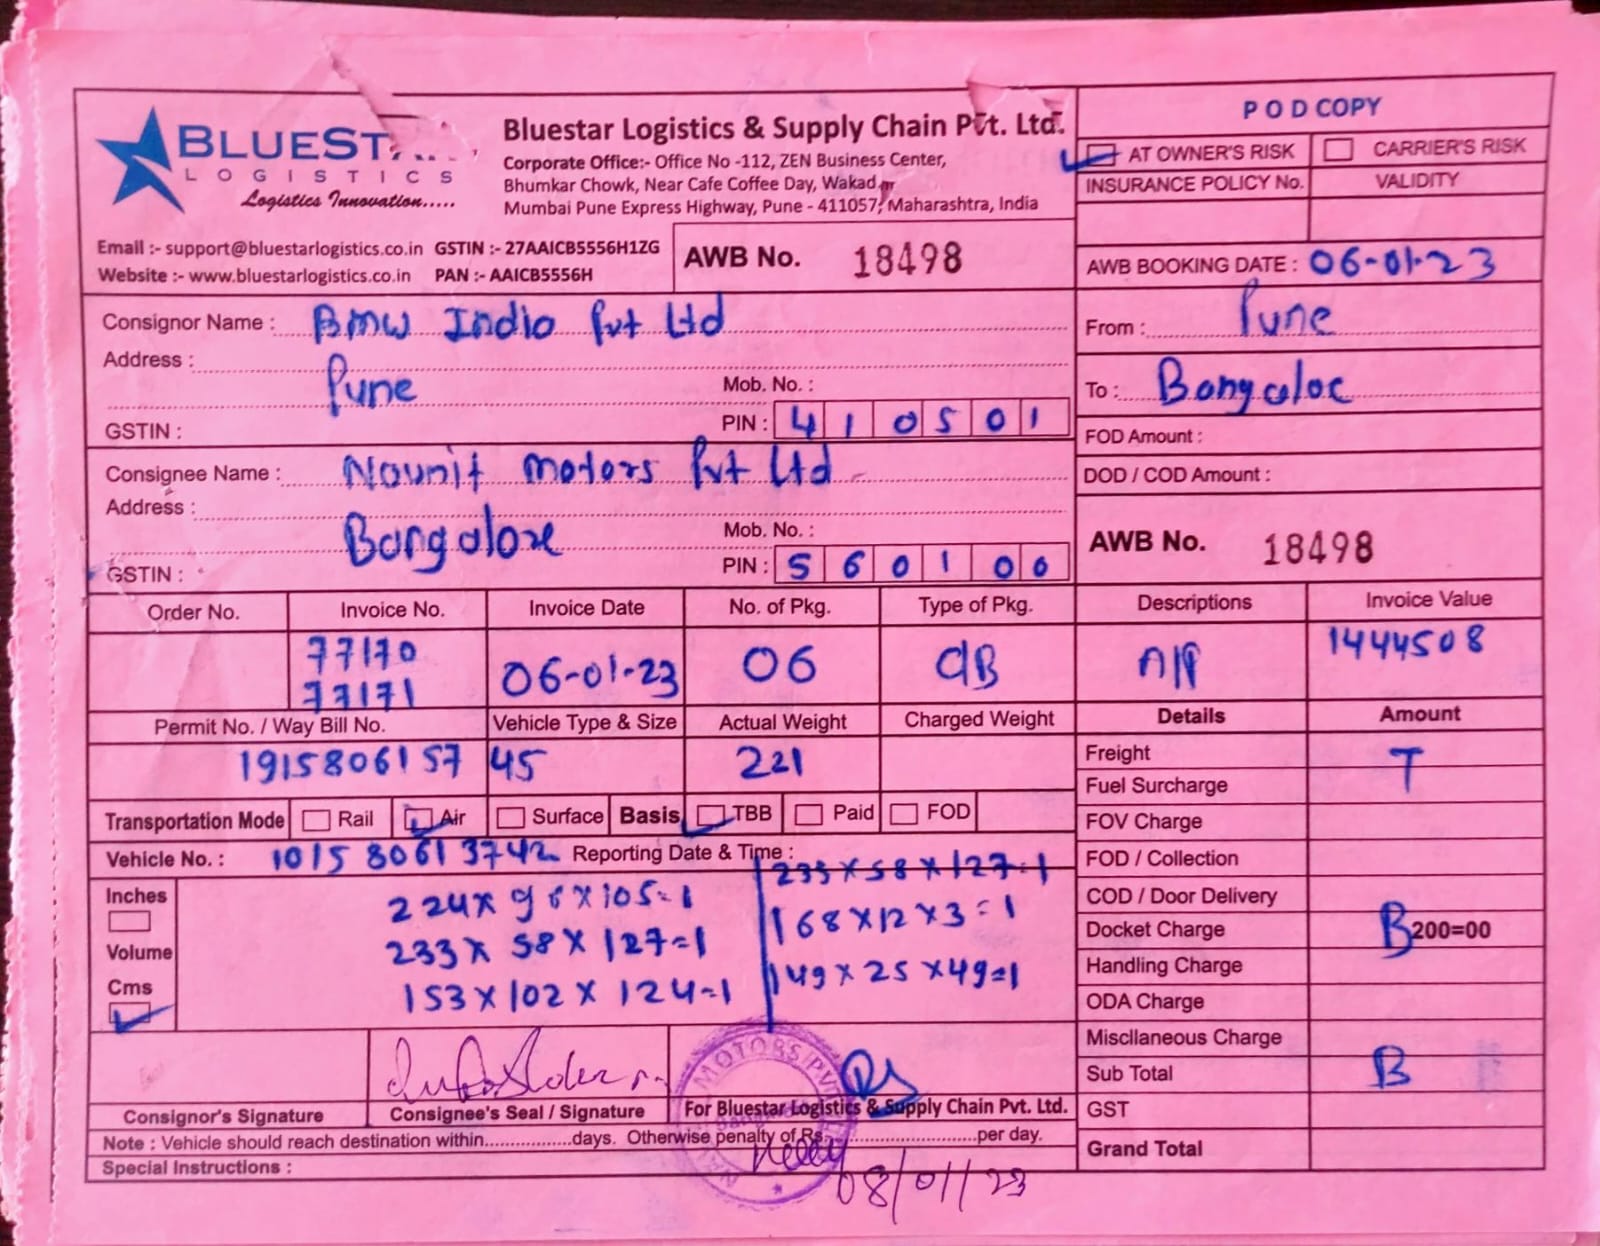 BLUEST
LOGISTICS
Logistics Innovation.....
Bluestar Logistics & Supply Chain Pvt. Ltd.
Corporate Office:- Office No -112, ZEN Business Center,
Bhumkar Chowk, Near Cafe Coffee Day, Wakad
Mumbai Pune Express Highway, Pune - 411057, Maharashtra, India
Email :- support@bluestarlogistics.co.in GSTIN :- 27AAICB5556H1ZG
Website :- www.bluestarlogistics.co.in PAN :- AAICB5556H
AWB No. 18498
POD COPY
AT OWNER'S RISK CARRIER'S RISK
INSURANCE POLICY No. VALIDITY
AWB BOOKING DATE : 06-01-23
Consignor Name : BMW India Pvt Ltd
Address :
Pune
Mob. No. :
GSTIN :
PIN : 410501
From : Pune
To : Bangaloc
FOD Amount :
DOD / COD Amount :
Consignee Name : Navnit motors Pvt Ltd
Address :
Bangalore
Mob. No. :
GSTIN :
PIN : 560100
AWB No. 18498
Order No. Invoice No. Invoice Date No. of Pkg. Type of Pkg. Descriptions Invoice Value
77170
77171
06-01-23 06 CB A/P 1444508
Permit No. / Way Bill No. Vehicle Type & Size Actual Weight Charged Weight Details Amount
1915806157 45 221
Freight T
Fuel Surcharge
Transportation Mode Rail Air Surface Basis TBB Paid FOD
FOV Charge
Vehicle No. : 1015 8061 3742 Reporting Date & Time :
FOD / Collection
Inches
Volume
Cms
233 x 58 x 127=1
233 x 58 x 127=1
168 x 12 x 3 = 1
153 x 102 x 124=1
149 x 25 x 49=1
COD / Door Delivery
Docket Charge B 200=00
Handling Charge
ODA Charge
Miscllaneous Charge
Sub Total B
GST
Grand Total
MOTORS PVT
Consignor's Signature Consignee's Seal / Signature For Bluestar Logistics & Supply Chain Pvt. Ltd.
Note : Vehicle should reach destination within.................days. Otherwise penalty of Rs. .........................per day.
Special Instructions :
08/01/23